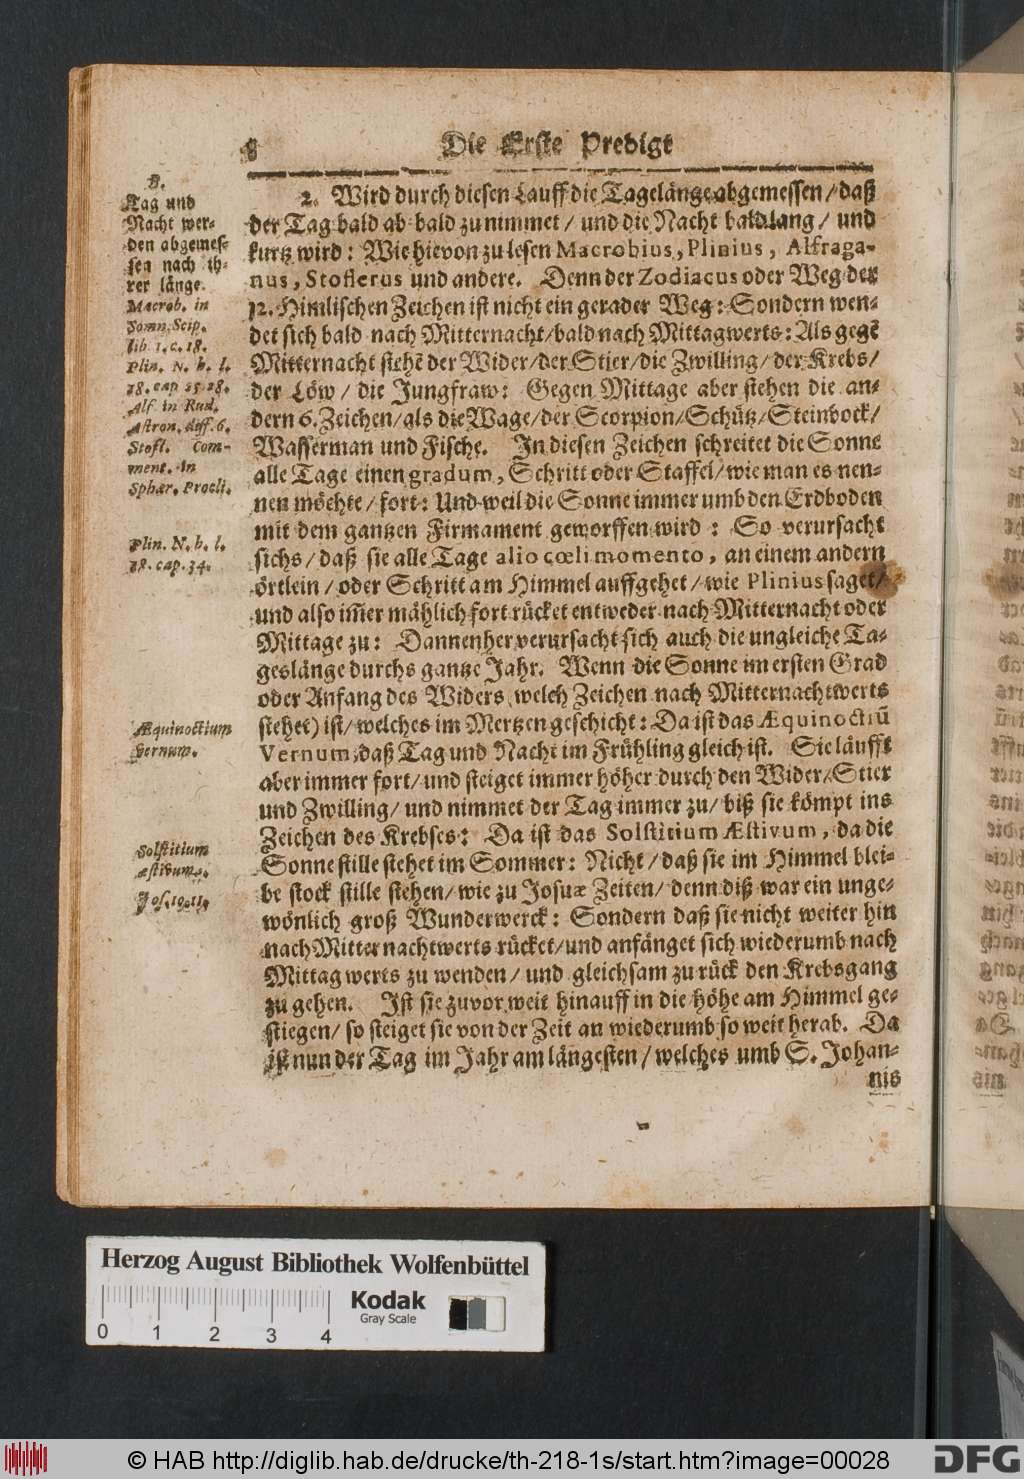 8 Die Erste Predigt
2. Wird durch diesen Lauff die Tagelänge abgemessen/ daß
der Tag bald ab bald zu nimmet/ und die Nacht bald lang/ und
kurtz wird: Wie hievon zu lesen Macrobius, Plinius, Alfraga-
nus, Stoflerus und andere. Denn der Zodiacus oder Weg der
12. Himlischen Zeichen ist nicht ein gerader Weg: Sondern wen-
det sich bald nach Mitternacht/ bald nach Mittagwerts: Als gegē
Mitternacht stehē der Wider/ der Stier/ die Zwilling/ der Krebs/
der Löw/ die Jungfraw: Gegen Mittage aber stehen die an-
dern 6. Zeichen/ als die Wage/ der Scorpion/ Schütz/ Steinbock/
Wasserman und Fische. In diesen Zeichen schreitet die Sonne
alle Tage einen gradum, Schritt oder Staffel/ wie man es nen-
nen möchte/ fort: Und weil die Sonne immer umb den Erdboden
mit dem gantzen Firmament geworffen wird: So verursacht
sichs/ daß sie alle Tage alio cœli momento, an einem andern
örtlein/ oder Schritt am Himmel auffgehet/ wie Plinius saget/
und also im̄er mählich fort rücket entweder nach Mitternacht oder
Mittage zu: Dannenher verursacht sich auch die ungleiche Ta-
geslänge durchs gantze Jahr. Wenn die Sonne im ersten Grad
oder Anfang des Widers (welch Zeichen nach Mitternachtwerts
stehet) ist/ welches im Mertzen geschicht: Da ist das Æquinoctiū
Vernum, daß Tag und Nacht im Frühling gleich ist. Sie läufft
aber immer fort/ und steiget immer höher durch den Wider/ Stier
und Zwilling/ und nimmet der Tag immer zu/ biß sie kömpt ins
Zeichen des Krebses: Da ist das Solstitium Æstivum, da die
Sonne stille stehet im Sommer: Nicht/ daß sie im Himmel blei-
be stock stille stehen/ wie zu Josuæ Zeiten/ denn diß war ein unge-
wönlich groß Wunderwerck: Sondern daß sie nicht weiter hin
nach Mitternachtwerts rücket/ und anfänget sich wiederumb nach
Mittagwerts zu wenden/ und gleichsam zu rück den Krebsgang
zu gehen. Ist sie zuvor weit hinauff in die höhe am Himmel ge-
stiegen/ so steiget sie von der Zeit an wiederumb so weit herab. Da
ist nun der Tag im Jahr am längesten/ welches umb S. Johan-
nis
Tag und
Nacht wer-
den abgemes-
sen nach ih-
rer länge.
Macrob. in
Somn. Scip.
lib. 1. c. 18.
Plin. N. h. l.
18. cap 25 28.
Alf. in Rud.
Astron. diff. 6.
Stofl. Com-
ment. in
Sphær. Procli.
Plin. N. h. l.
18. cap. 34.
Æquinoctium
vernum.
Solstitium
æstivum.
Jos. 10. 11.
Herzog August Bibliothek Wolfenbüttel
0 1 2 3 4
Kodak
Gray Scale
© HAB http://diglib.hab.de/drucke/th-218-1s/start.htm?image=00028
DFG